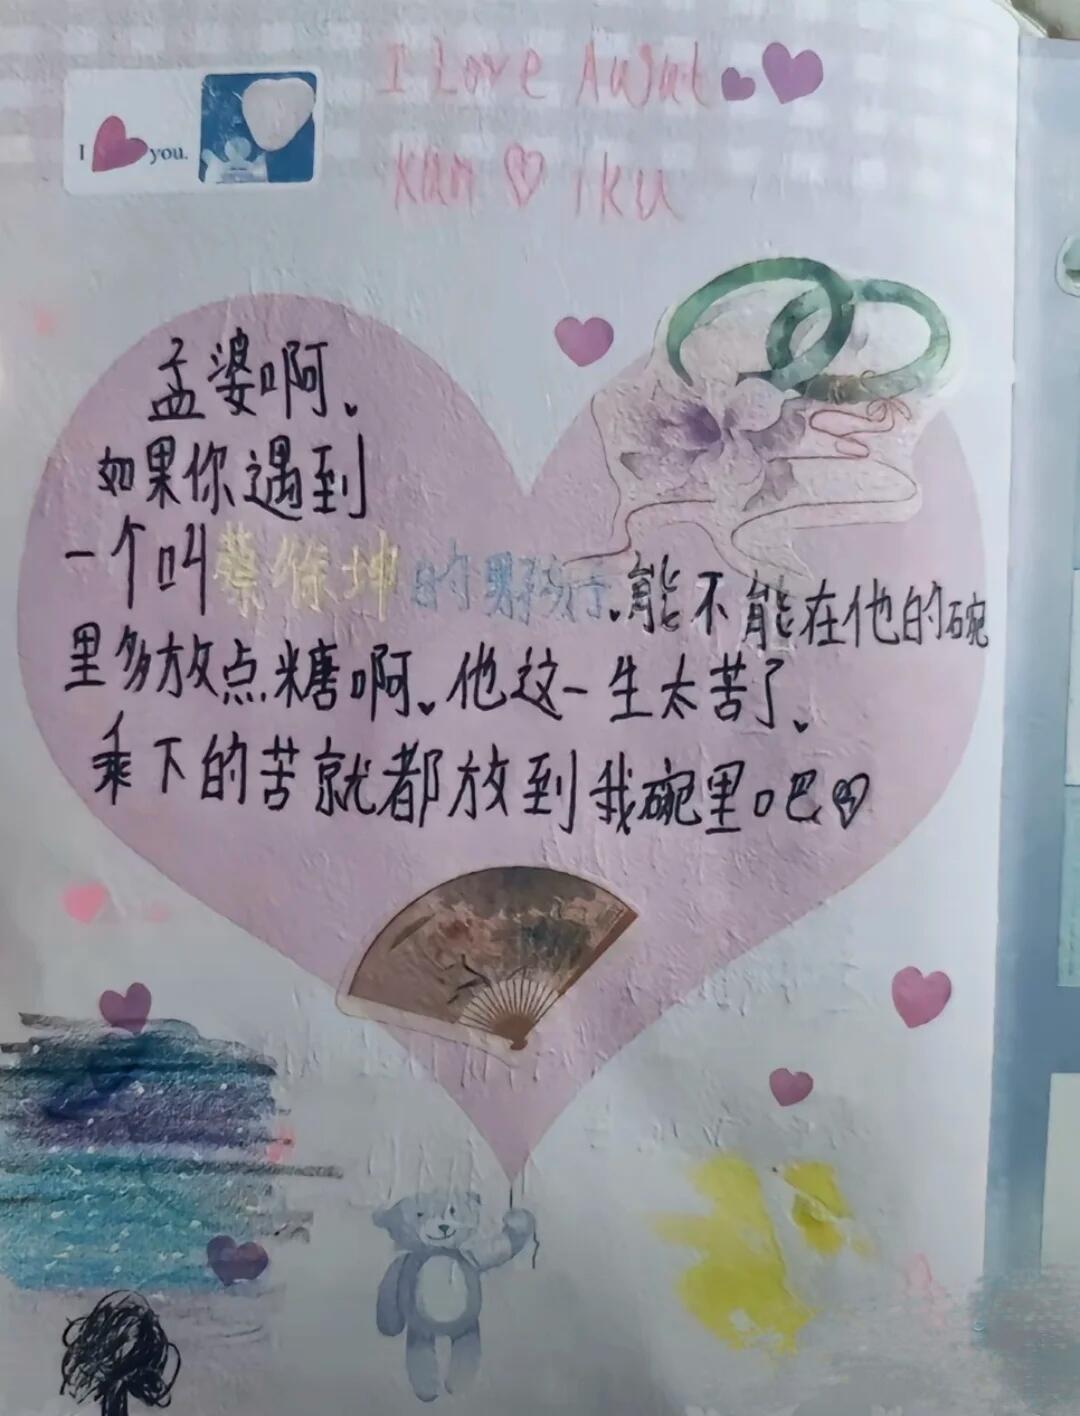 I Love Awat
I you.
kun iku
孟婆啊、
如果你遇到
一个叫蔡徐坤的男孩子.能不能在他的碗
里多放点糖啊、他这一生太苦了、
剩下的苦就都放到我碗里吧